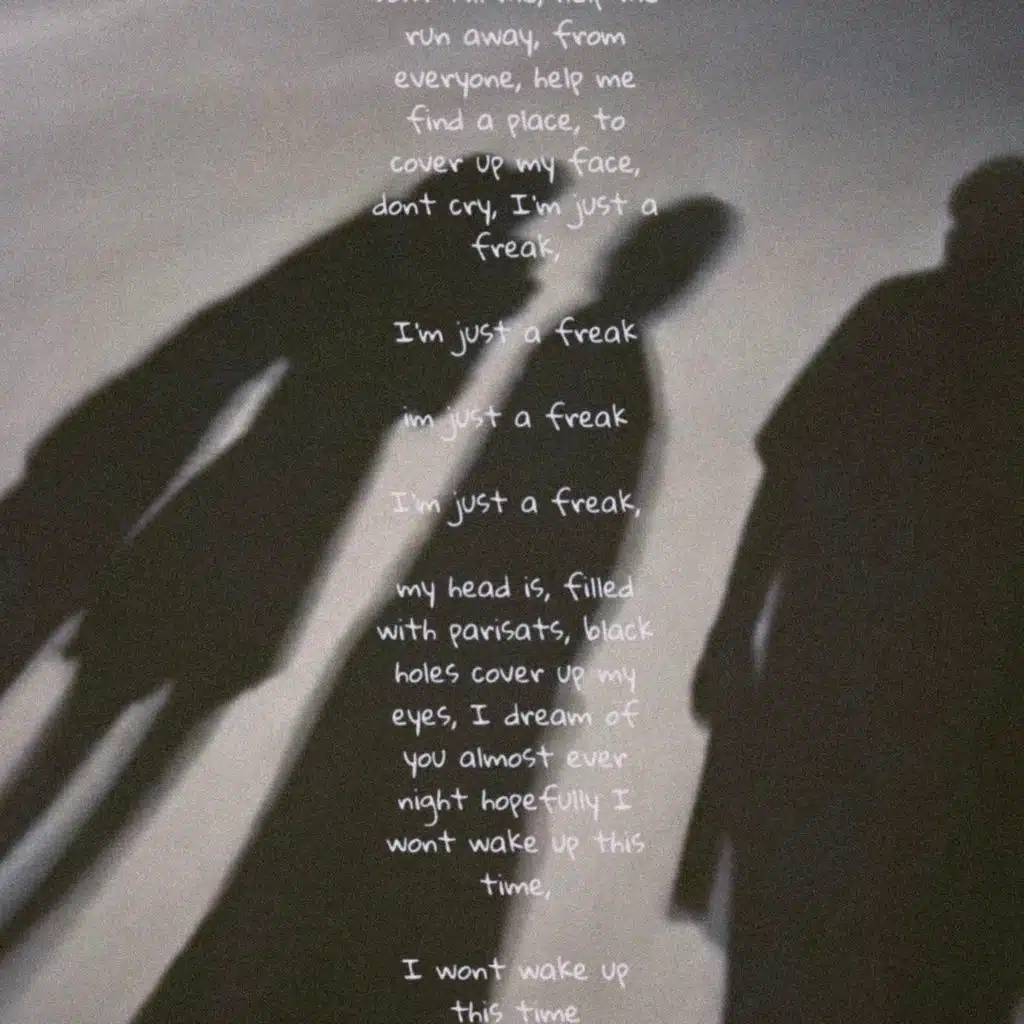 run away, from
everyone, help me
find a place, to
cover up my face,
dont cry, I'm just a
freak,
I'm just a freak
im just a freak
I'm just a freak,
my head is, filled
with parisats, black
holes cover up my
eyes, I dream of
you almost ever
night hopefully I
wont wake up this
time,
I wont wake up
this time